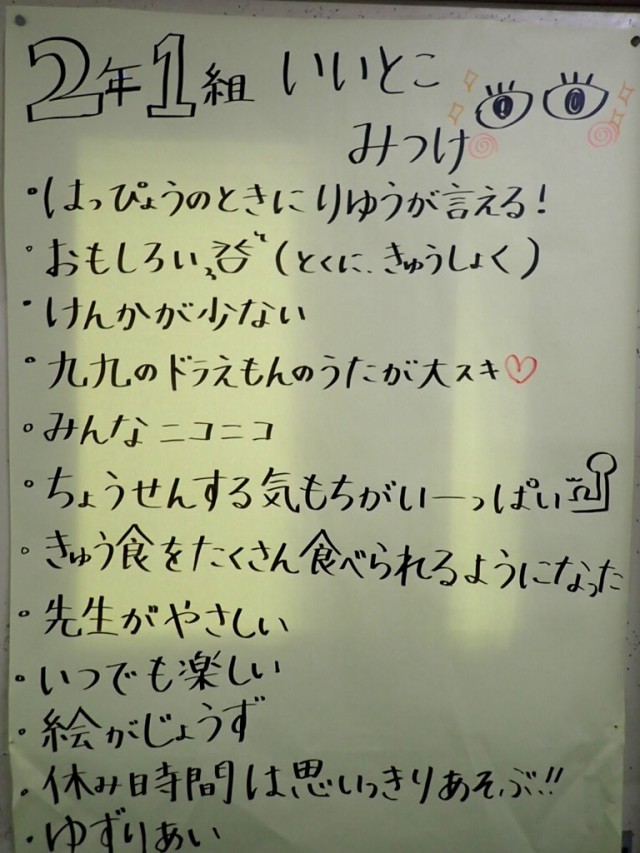 2年1組 いいとこ
みつけ
・はっぴょうのときにりゆうが言える!
・おもしろい(とくに、きゅうしょく)
・けんかが少ない
・九九のドラえもんのうたが大スキ♡
・みんなニコニコ
・ちょうせんする気もちがいーっぱい
・きゅう食をたくさん食べられるようになった
・先生がやさしい
・いつでも楽しい
・絵がじょうず
・休み時間は思いっきりあそぶ!!
・ゆずりあい